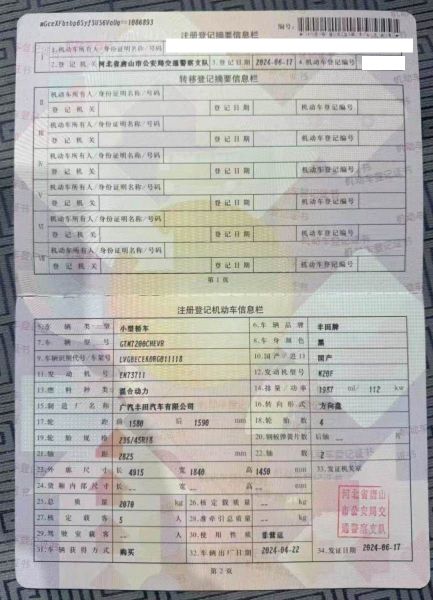 注册登记摘要信息栏
编号:
I 1.机动车所有人/身份证明名称/号码
2.登记机关 河北省唐山市公安局交通警察支队 3.登记日期 2024-06-17 4.机动车登记编号
转移登记摘要信息栏
II 机动车所有人/身份证明名称/号码
登记机关 登记日期 机动车登记编号
III 机动车所有人/身份证明名称/号码
登记机关 登记日期 机动车登记编号
IV 机动车所有人/身份证明名称/号码
登记机关 登记日期 机动车登记编号
V 机动车所有人/身份证明名称/号码
登记机关 登记日期 机动车登记编号
VI 机动车所有人/身份证明名称/号码
登记机关 登记日期 机动车登记编号
VII 机动车所有人/身份证明名称/号码
登记机关 登记日期 机动车登记编号
第1页
注册登记机动车信息栏
5.车辆类型 小型轿车 6.车辆品牌 丰田牌
7.车辆型号 GTM7200CHEVR 8.车身颜色 黑
9.车辆识别代号/车架号 10.国产/进口 国产
11.发动机号 12.发动机型号 M20F
13.燃料种类 混合动力 14.排量/功率 1987 ml/ 112 kw
15.制造厂名称 广汽丰田汽车有限公司 16.转向形式 方向盘
17.轮距 前 1580 后 1590 mm 18.轮胎数 4
19.轮胎规格 235/45R18 20.钢板弹簧片数 后轴 -- 片
21.轴距 2825 mm 22.轴数 2
23.外廓尺寸 长 4915 宽 1840 高 1450 mm 33.发证机关章
24.货厢内部尺寸 长 -- 宽 -- 高 -- mm
25.总质量 2070 kg 26.核定载质量 -- kg
27.核定载客 5 人 28.准牵引总质量 -- kg
29.驾驶室载客 -- 人 30.使用性质 非营运
31.车辆获得方式 购买 32.车辆出厂日期 2024-04-22 34.发证日期 2024-06-17
河北省唐山
市公安局交
通警察支队
第2页